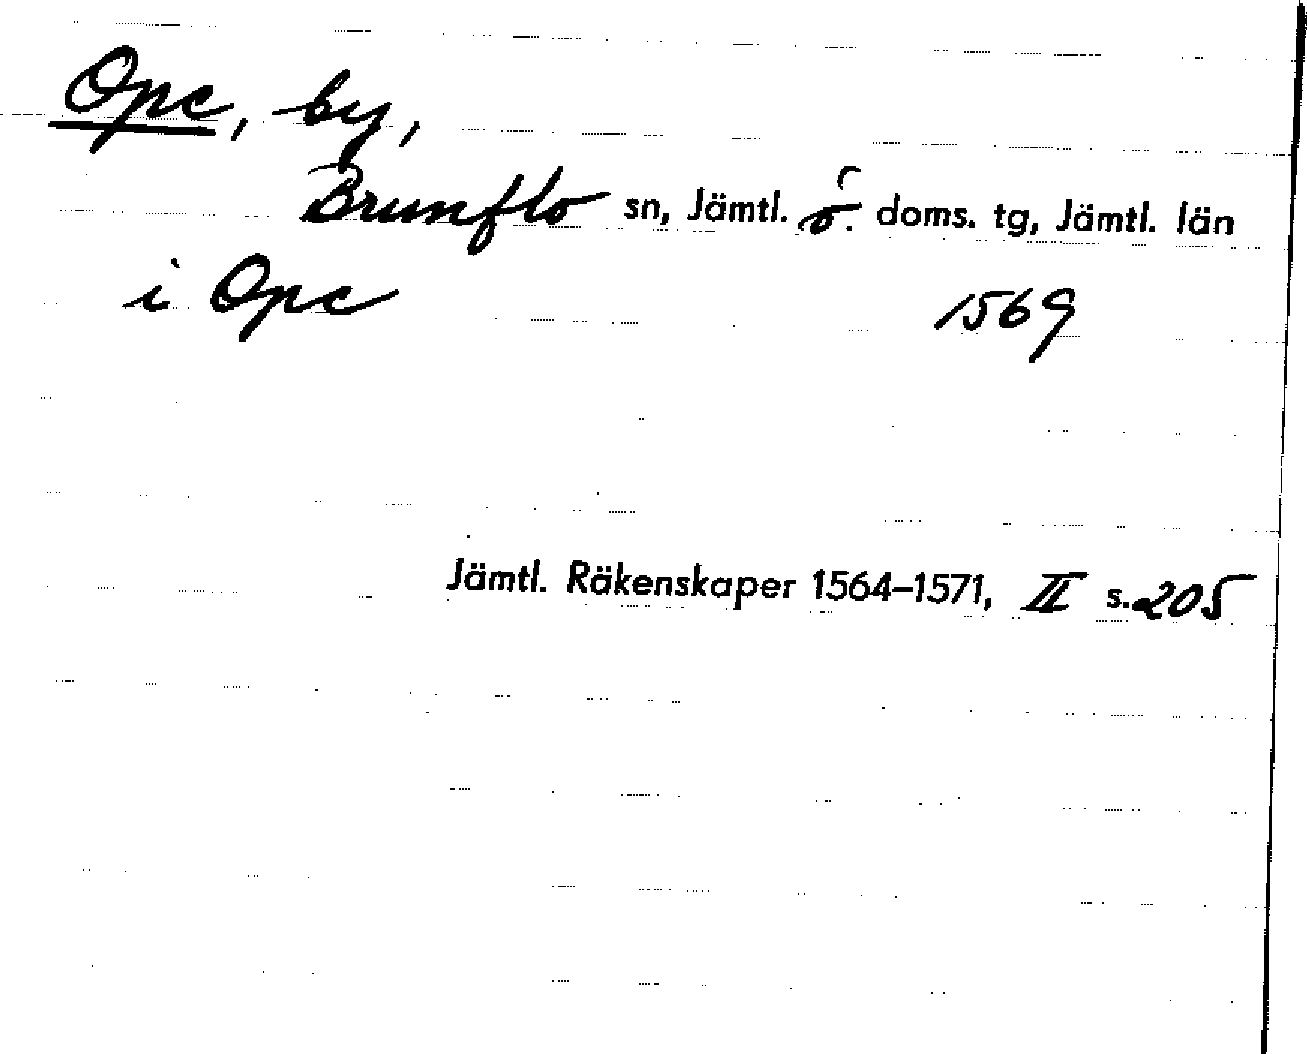 Ope, by,
Brunflo sn, Jämtl. ö. doms. tg, Jämtl. län
i Ope 1569
Jämtl. Räkenskaper 1564–1571, II s. 205